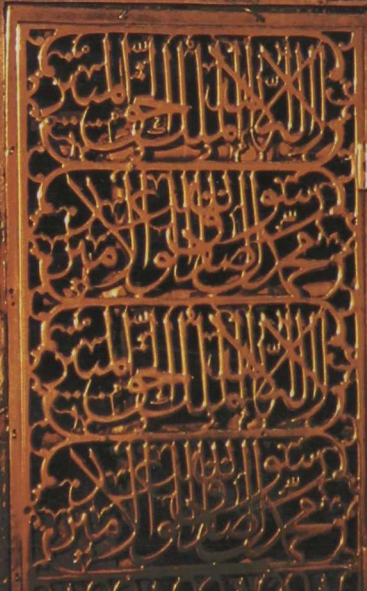 لا إله إلا الله الملك الحق المبين
محمد رسول الله الصادق الوعد الأمين
لا إله إلا الله الملك الحق المبين
محمد رسول الله الصادق الوعد الأمين